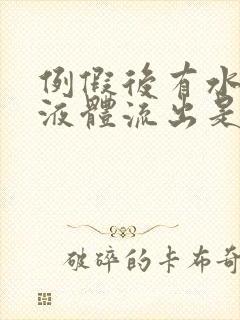 例假後有水
液體流出是
破碎的卡布奇